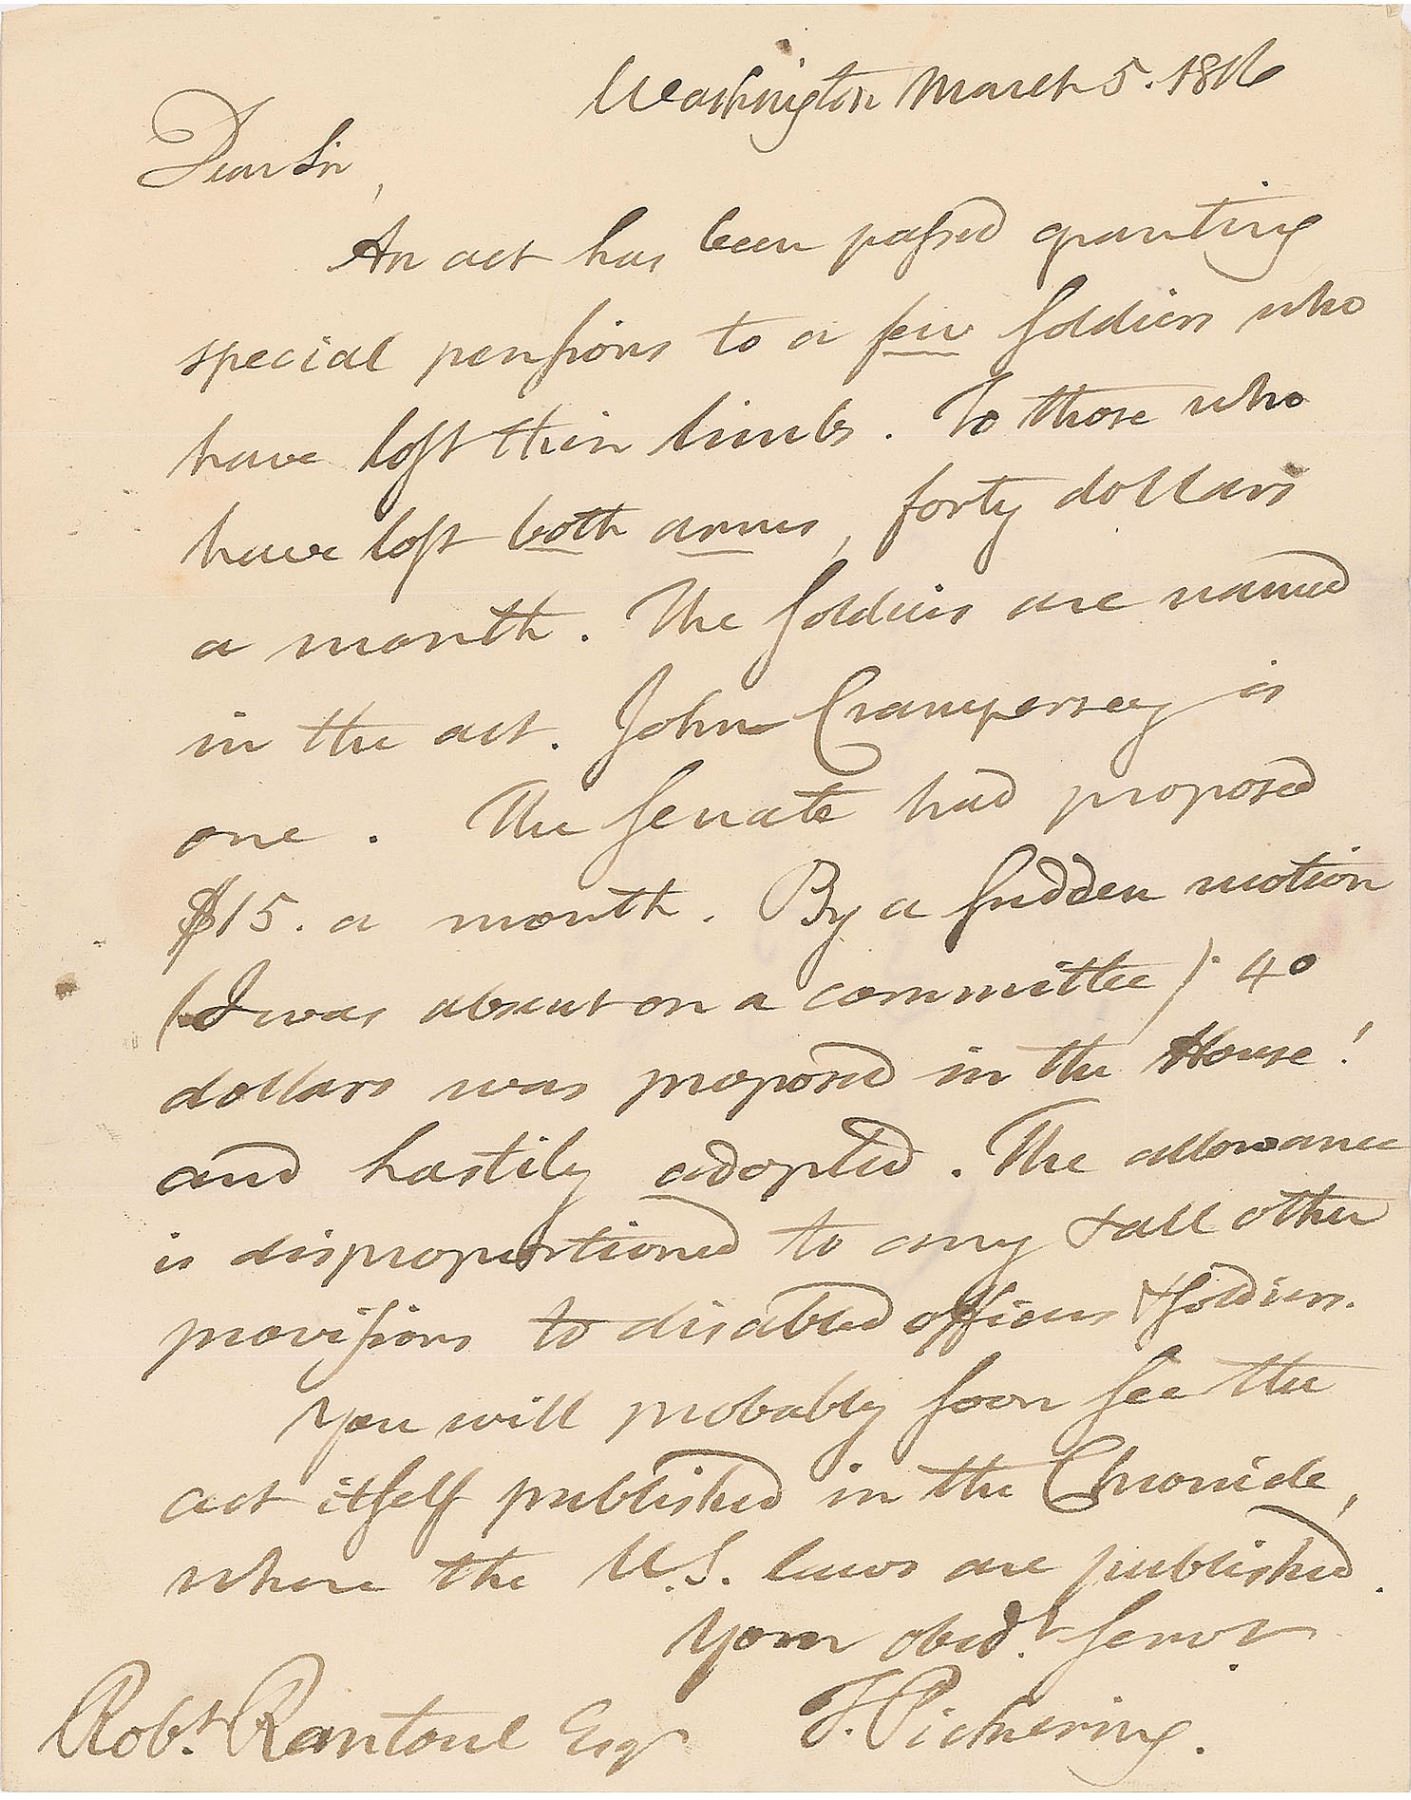 Washington March 5. 1816
Dear Sir,
An act has been passed granting
special pensions to a few soldiers who
have lost their limbs. To those who
have lost both arms, forty dollars
a month. The soldiers are named
in the act. John Crampersey is
one. The Senate had proposed
$15. a month. By a sudden motion
(I was absent on a committee) 40
dollars was proposed in the House!
and hastily adopted. The allowance
is disproportioned to any & all other
provisions to disabled officers & soldiers.
You will probably soon see the
act itself published in the Chronicle,
where the U.S. laws are published.
Your obedt. servt.
T. Pickering.
Robt. Rantoul Esqr